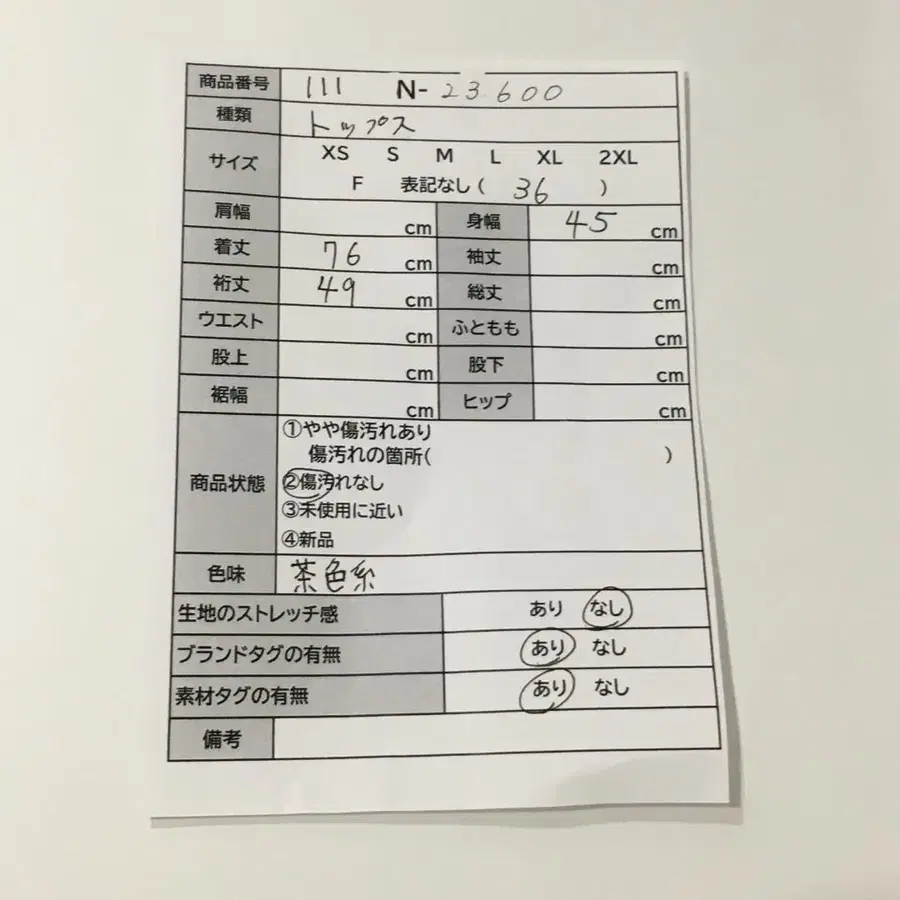 商品番号 111 N-23600
種類 トップス
サイズ XS S M L XL 2XL
F 表記なし( 36 )
肩幅 cm 身幅 45 cm
着丈 76 cm 袖丈 cm
裄丈 49 cm 総丈 cm
ウエスト cm ふともも cm
股上 cm 股下 cm
裾幅 cm ヒップ cm
商品状態 ①やや傷汚れあり
傷汚れの箇所( )
②傷汚れなし
③未使用に近い
④新品
色味 茶色系
生地のストレッチ感 あり なし
ブランドタグの有無 あり なし
素材タグの有無 あり なし
備考